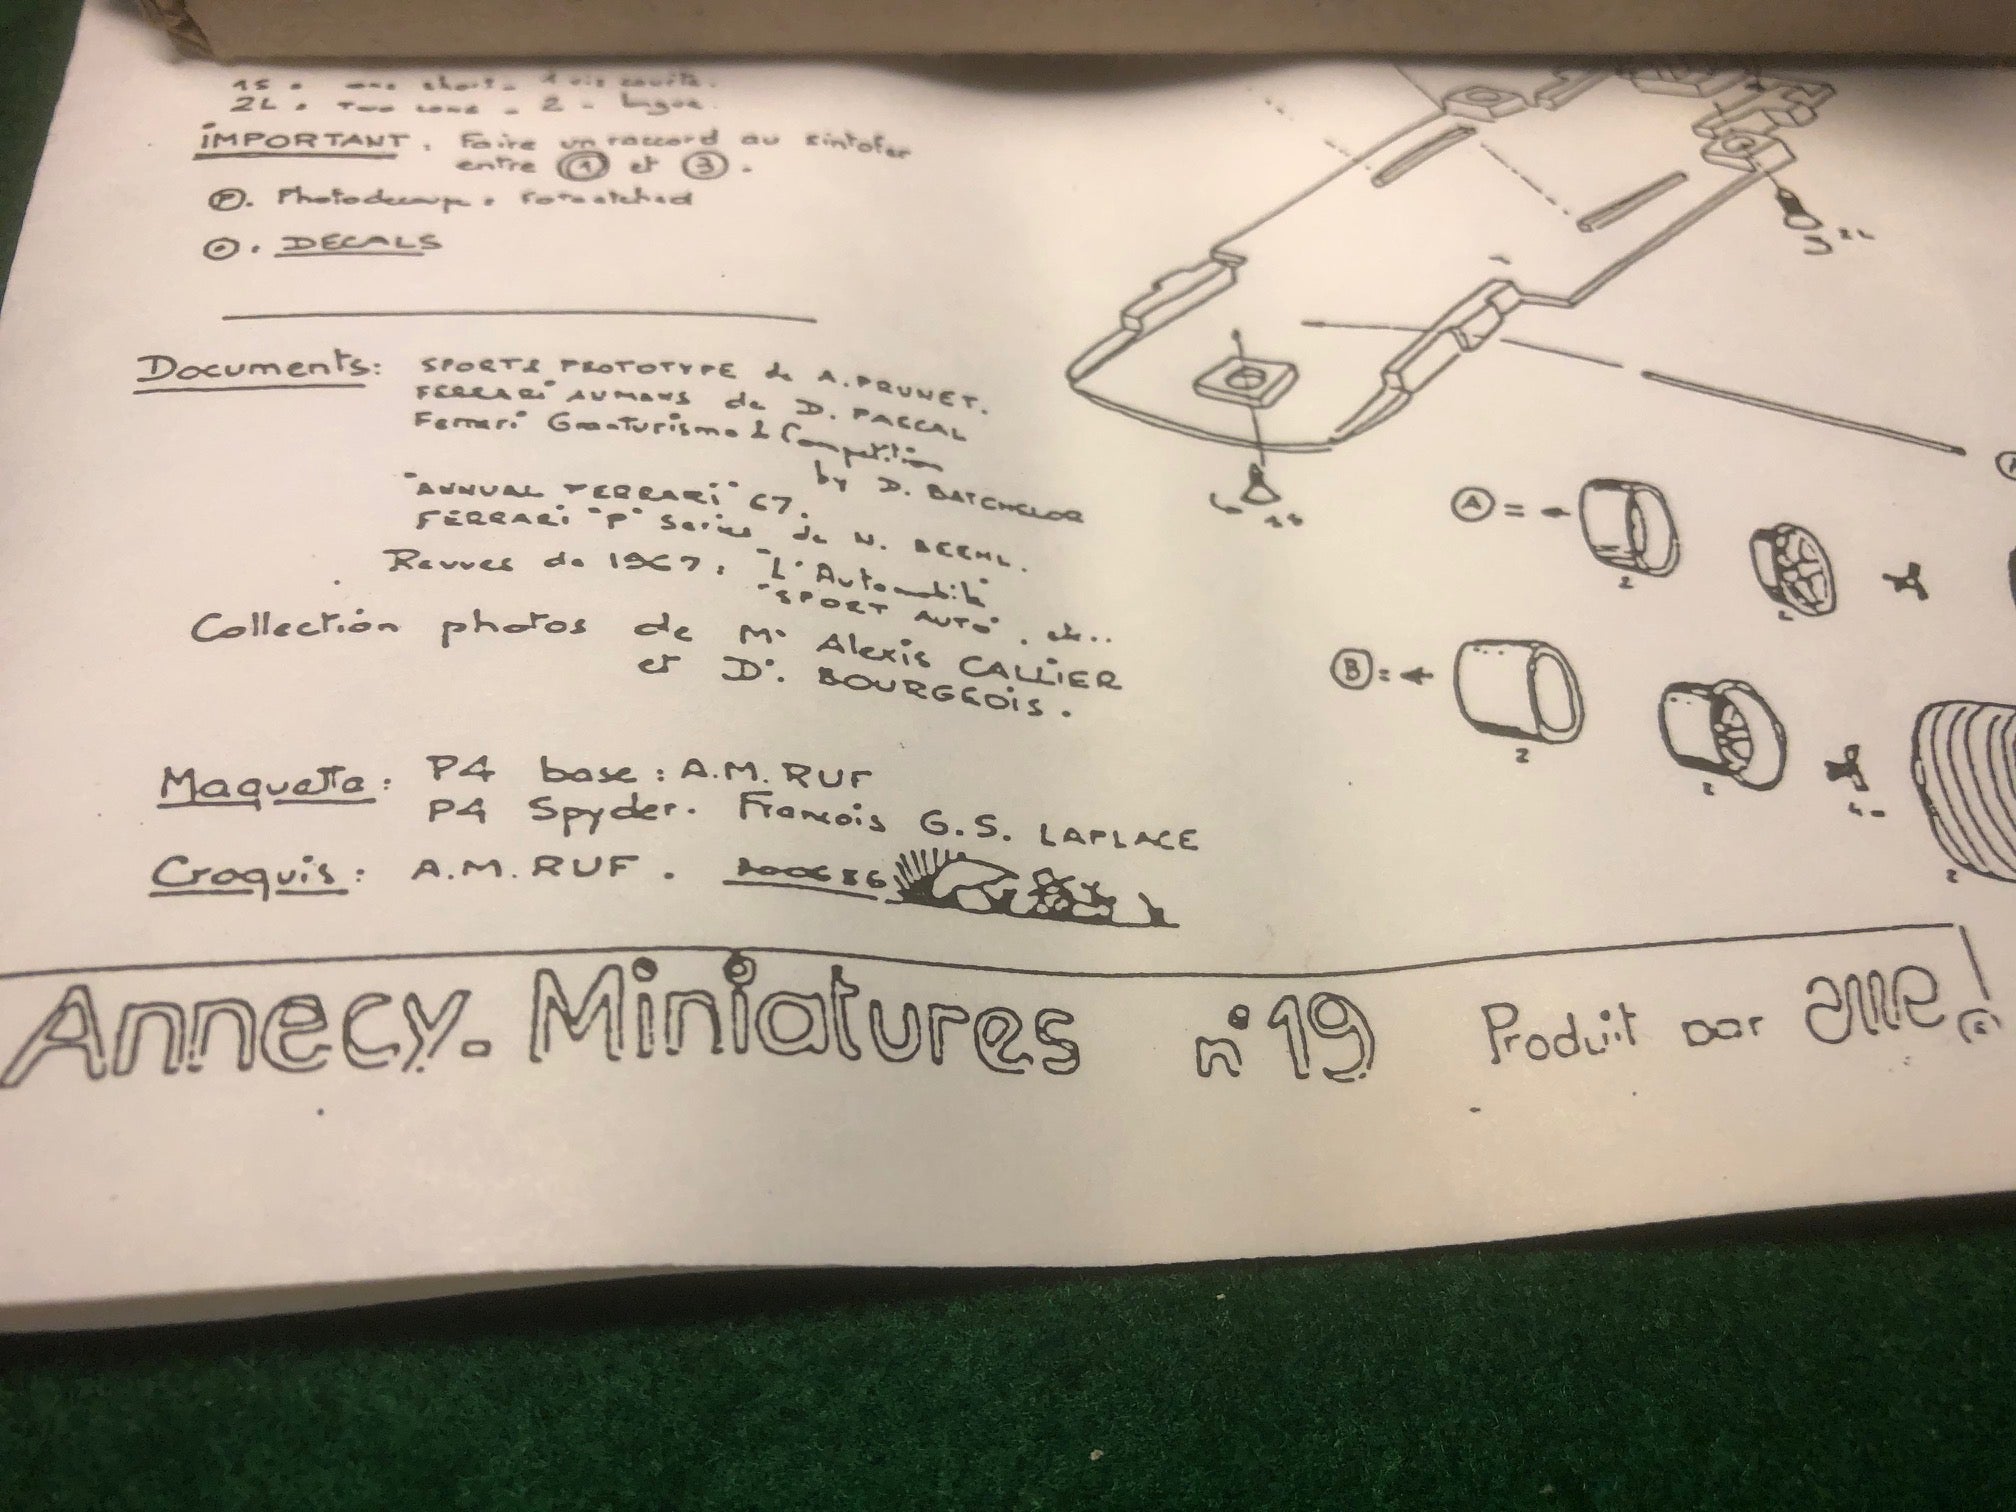 1S. one short. 1 vis courte.
2L.
IMPORTANT. Faire un raccord au sintofer
entre ① et ③.
Ⓟ. Photodecoupe.
⊙. DECALS
Documents: SPORTS PROTOTYPE de A. PRUNET.
FERRARI AU MANS de D. PASCAL
Ferrari Granturismo & Competition
by D. BATCHELOR
"ANNUAL FERRARI" 67.
FERRARI "P" Series de N.
Revues de 1967: "L'Automobile"
"SPORT AUTO". etc..
Collection photos de Mr Alexis CALLIER
et Dr. BOURGEOIS.
Maquette: P4 base: A.M. RUF
P4 Spyder. François G.S. LAPLACE
Croquis: A.M. RUF.
Annecy. Miniatures n°19 Produit par
2L
1S
Ⓐ =
2
2
Ⓑ =
2
2
2